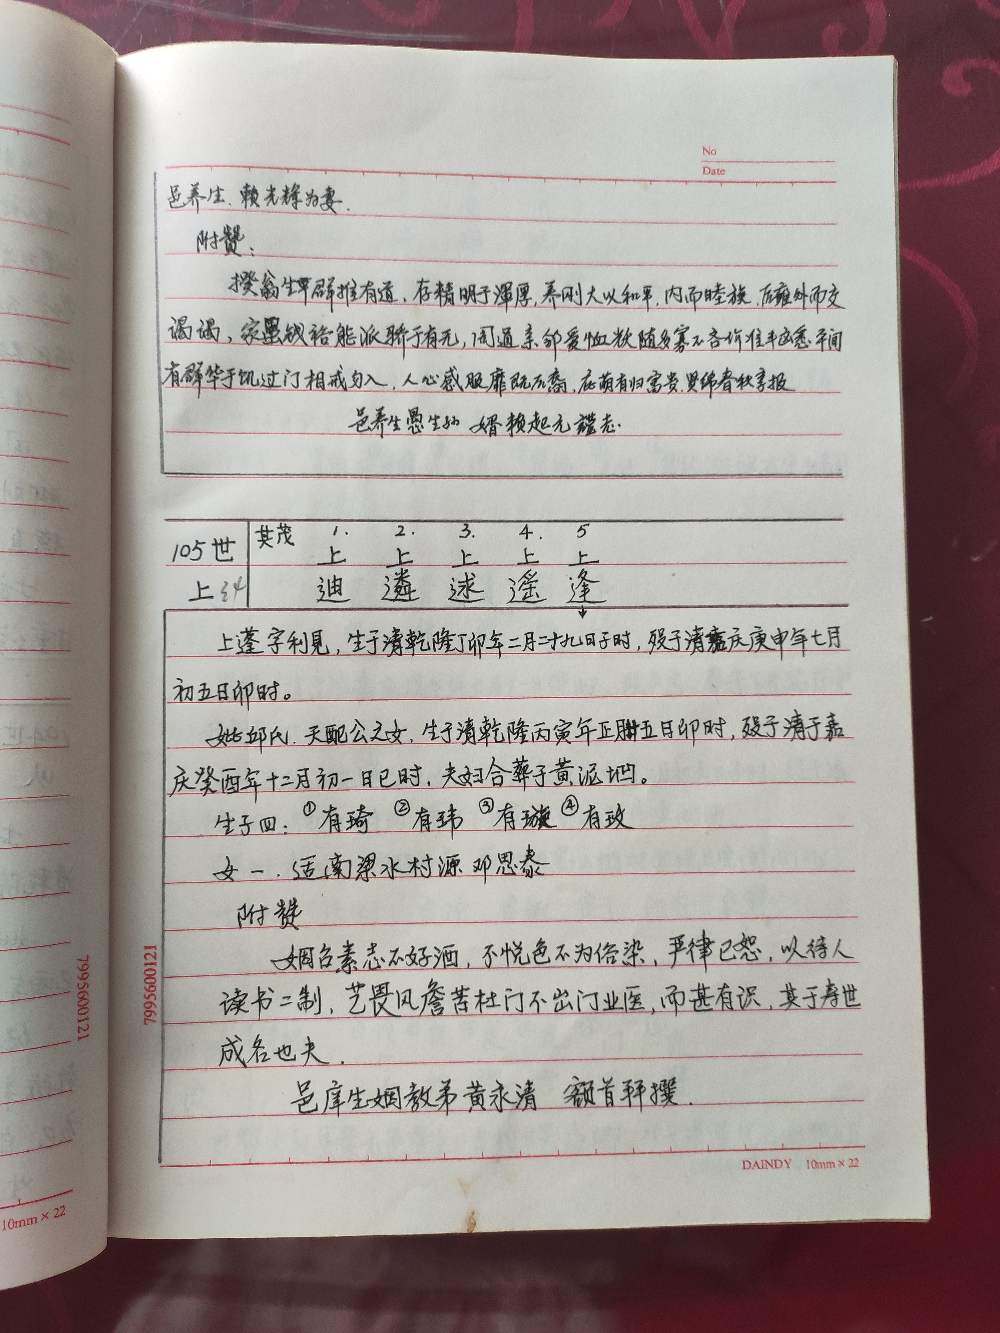 No
Date
邑养生、赖光绛为妻.
附赞:
揆翁生平群推有道,存精明于浑厚,养刚大以和平,内而睦族,而雍外而交
谒谒,家 钱裕能派骄于有无,周通亲邻爱恤 随多寡不吝价准 悉平间
有群华于饥过门相戒勿入,人心感服靡既不喬,在萌有归富贵 绵春秋 报
邑养生愚生孙 婿赖起元谨志.
105世
上
其茂 1. 2. 3. 4. 5
上 上 上 上 上
迪 遴 逑 遥 逢
上蓬字利见,生于清乾隆丁卯年二月二十九日子时,殁于清嘉庆庚申年七月
初五日卯时。
妣邱氏.天配公之女,生于清乾隆丙寅年正月廿五日卯时,殁于清于嘉
庆癸酉年十二月初一日巳时,夫妇合葬于黄泥坳。
生子四:①有琦 ②有玮 ③有璇 ④有玫
女一.适南梁水村源邓思泰
附赞
姻台素志不好酒,不悦色不为俗染,严律已恕,以待人
读书二制,艺畏风詹苦杜门不出门业医,而甚有识,其于寿世
成名也夫.
邑庠生姻教弟黄永清 额首拜撰.
7995600121
7995600121
DAINDY 10mm×22
10mm×22